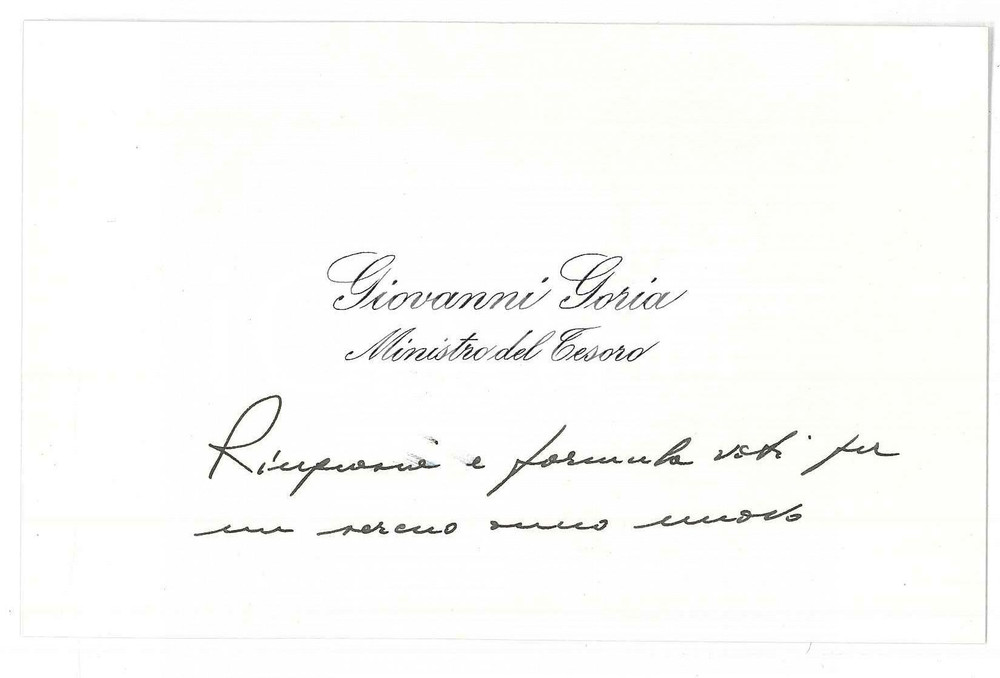 Giovanni Goria
Ministro del Tesoro
Ringrazia e formula voti per
un sereno anno nuovo